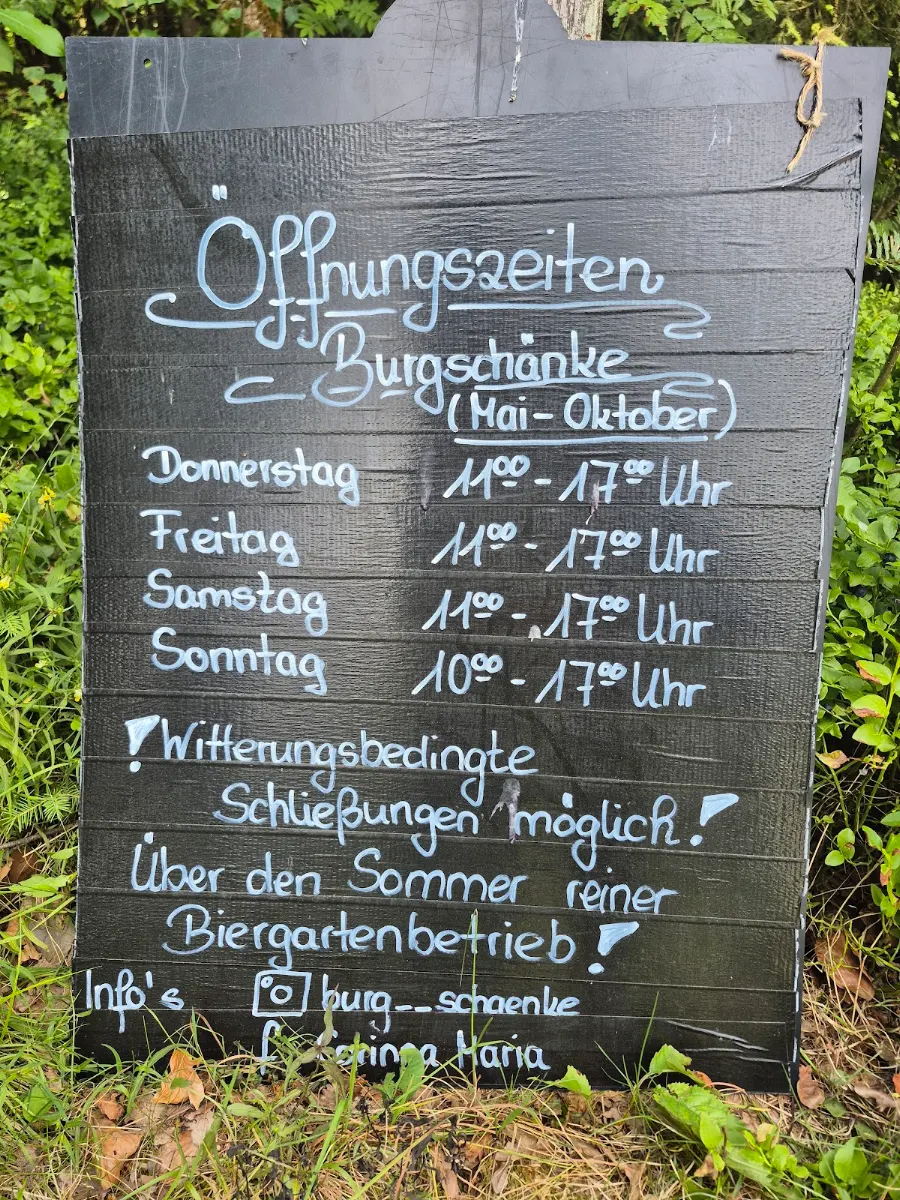 Öffnungszeiten
Burgschänke
(Mai - Oktober)
Donnerstag 11⁰⁰ - 17⁰⁰ Uhr
Freitag 11⁰⁰ - 17⁰⁰ Uhr
Samstag 11⁰⁰ - 17⁰⁰ Uhr
Sonntag 10⁰⁰ - 17⁰⁰ Uhr
! Witterungsbedingte
Schließungen möglich!
Über den Sommer reiner
Biergartenbetrieb!
Info's burg__schaenke
f Maria